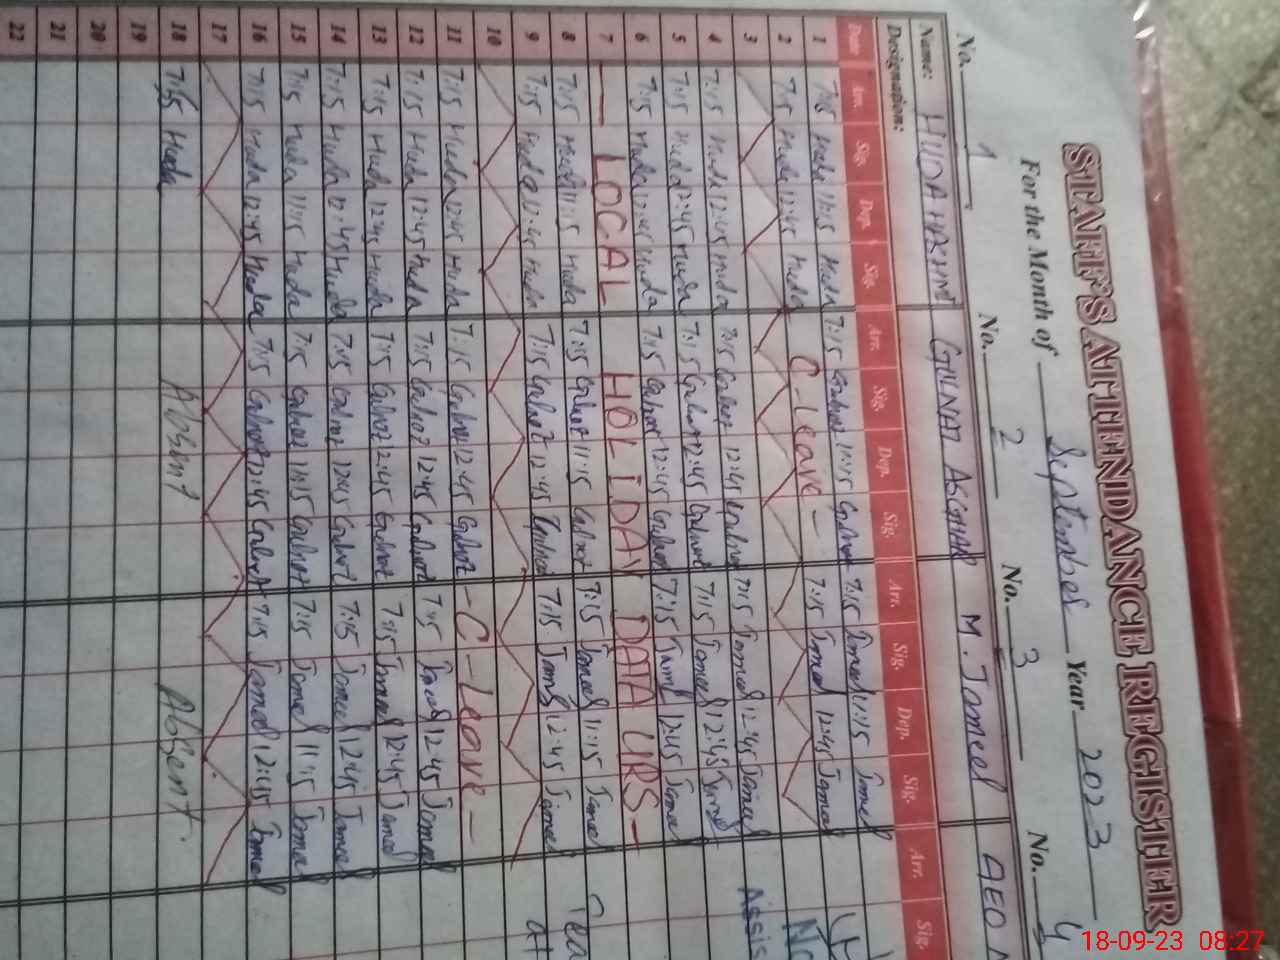 STAFF'S ATTENDANCE REGISTER
For the Month of September Year 2023
No. 1 No. 2 No. 3 No. 4
Name: HUDA GULNAZ ASGHAR M. Jameel AEO
Designation:
Date Arr. Sig. Dep. Sig. Arr. Sig. Dep. Sig. Arr. Sig. Dep. Sig. Arr. Sig.
1 7:15 Huda 11:15 Huda 7:15 Gulnaz 11:15 Gulnaz 7:15 Jameel 11:15 Jameel
2 7:15 Huda 12:45 Huda C-Leave- 7:15 Jameel 12:45 Jameel
3
4 7:15 Huda 12:45 Huda 7:15 Gulnaz 12:45 Gulnaz 7:15 Jameel 12:45 Jameel
5 7:15 Huda 12:45 Huda 7:15 Gulnaz 12:45 Gulnaz 7:15 Jameel 12:45 Jameel
6 7:15 Huda 12:45 Huda 7:15 Gulnaz 12:45 Gulnaz 7:15 Jameel 12:45 Jameel
7 — LOCAL HOLIDAY DATA URS -
8 7:15 Huda 11:15 Huda 7:15 Gulnaz 11:15 Gulnaz 7:15 Jameel 11:15 Jameel
9 7:15 Huda 12:45 Huda 7:15 Gulnaz 12:45 Gulnaz 7:15 Jameel 12:45 Jameel
10
11 7:15 Huda 12:45 Huda 7:15 Gulnaz 12:45 Gulnaz -C-Leave-
12 7:15 Huda 12:45 Huda 7:15 Gulnaz 12:45 Gulnaz 7:15 Jameel 12:45 Jameel
13 7:15 Huda 12:45 Huda 7:15 Gulnaz 12:45 Gulnaz 7:15 Jameel 12:45 Jameel
14 7:15 Huda 12:45 Huda 7:15 Gulnaz 12:45 Gulnaz 7:15 Jameel 12:45 Jameel
15 7:15 Huda 11:15 Huda 7:15 Gulnaz 11:15 Gulnaz 7:15 Jameel 11:15 Jameel
16 7:15 Huda 12:45 Huda 7:15 Gulnaz 12:45 Gulnaz 7:15 Jameel 12:45 Jameel
17
18 7:15 Huda Absent Absent.
19
20
21
22
18-09-23 08:27